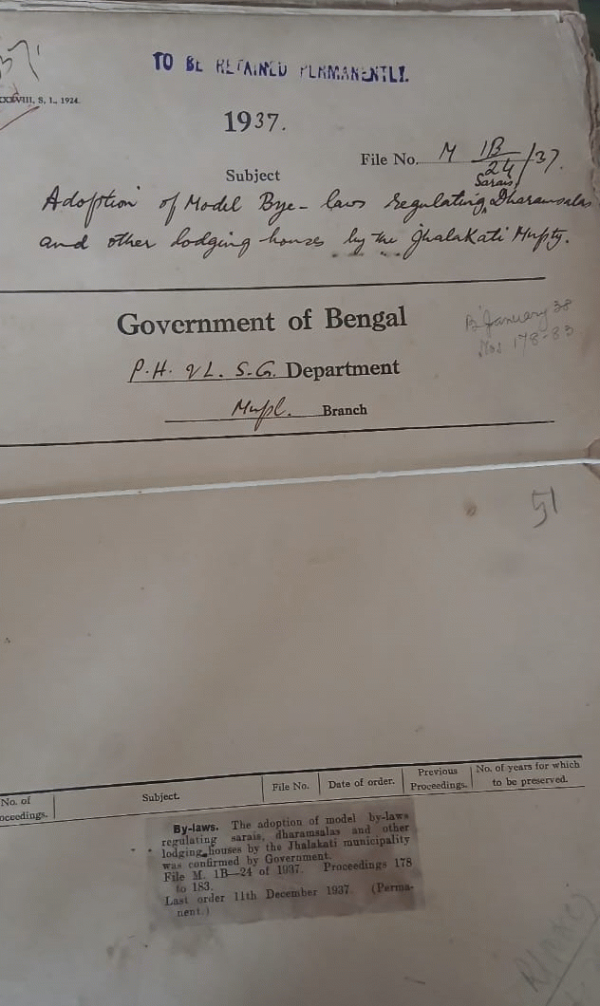 TO BE RETAINED PERMANENTLY.
XXXVIII, S. I., 1924.
1937.
File No. M 1B/24/37.
Subject
Sarais,
Adoption of Model Bye-laws regulating Dharamsalas
and other lodging houses by the Jhalakati Mupty.
Government of Bengal
B January 38
Nos 178-83
P.H. & L. S.G. Department
Mupl. Branch
51
No. of
oceedings.
Subject.
File No.
Date of order.
Previous
Proceedings.
No. of years for which
to be preserved.
By-laws. The adoption of model by-laws
regulating sarais, dharamsalas and other
lodging houses by the Jhalakati municipality
was confirmed by Government.
File M. 1B—24 of 1937. Proceedings 178
to 183.
Last order 11th December 1937. (Perma-
nent.)